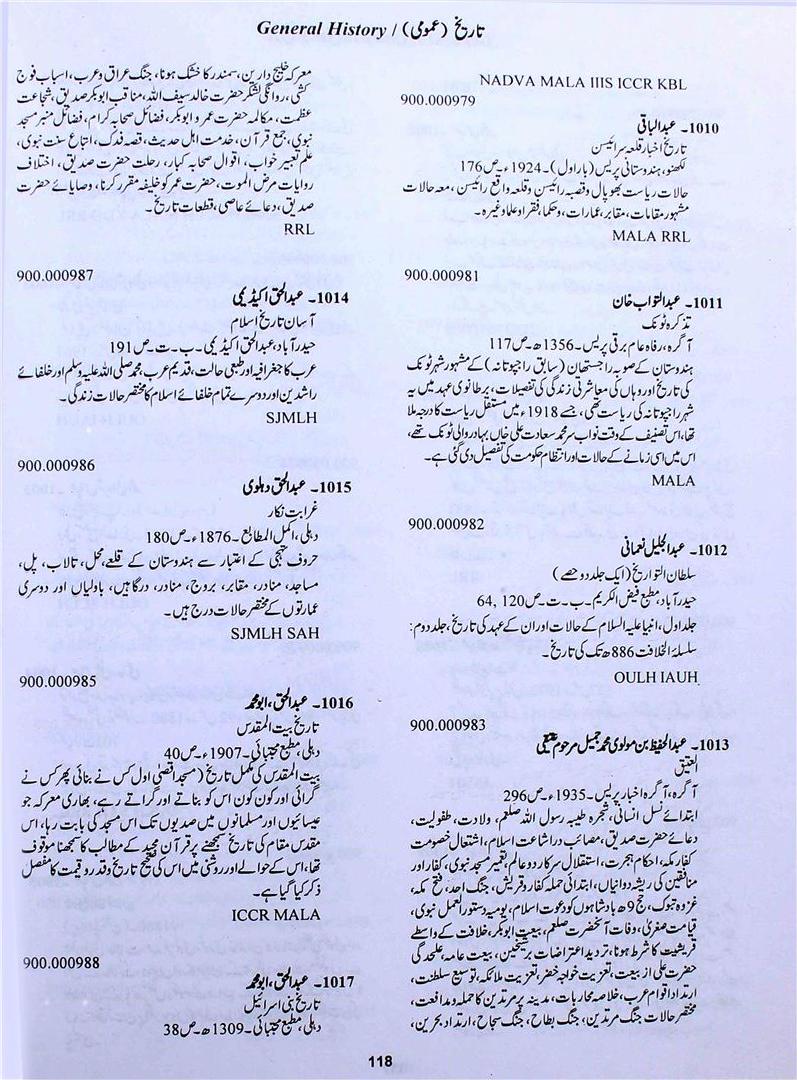 General History / تاریخ (عمومی)
NADVA MALA IIIS ICCR KBL
900.000979
1010۔ عبدالباقی
تاریخ اخبار قلعہ سرائیسن
لکھنو، ہندوستانی پریس (بار اول)۔ 1924ء۔ ص 176
حالات ریاست بھوپال و قصبہ رائیسن و قلعہ واقع رائیسن، معہ حالات
مشہور مقامات، مقابر، عمارات، وحکما، فقراء و علماء وغیرہ۔
MALA RRL
900.000981
1011۔ عبدالتواب خان
تذکرہ ٹونک
آگرہ، رفاہ عام برقی پریس۔ 1356ھ۔ ص 117
ہندوستان کے صوبہ راجستھان (سابق راجپوتانہ) کے مشہور شہر ٹونک
کی تاریخ اور وہاں کی معاشرتی زندگی کی تفصیلات، برطانوی عہد میں یہ
شہر راجپوتانہ کی ریاست تھی، جسے 1918ء میں مستقل ریاست کا درجہ ملا
تھا، اس تصنیف کے وقت نواب سر محمد سعادت علی خاں بہادر والی ٹونک تھے،
اس میں اسی زمانے کے حالات اور انتظام حکومت کی تفصیل دی گئی ہے۔
MALA
900.000982
1012۔ عبدالجلیل نعمانی
سلطان التواریخ (ایک جلد دو حصے)
حیدرآباد، مطبع فیض الکریم۔ ب۔ت۔ ص 120, 64
جلد اول، انبیا علیہ السلام کے حالات اور ان کے عہد کی تاریخ، جلد دوم:
سلسلۂ الخلافت 886ھ تک کی تاریخ۔
OULH IAUH
900.000983
1013۔ عبدالحفیظ بن مولوی محمد جمیل مرحوم عتیقی
العتیق
آگرہ، آگرہ اخبار پریس۔ 1935ء۔ ص 296
ابتدائے نسل انسانی، شجرہ طیبہ رسول اللہ صلعم، ولادت، طفولیت،
دعائے حضرت صدیق، مصائب در اشاعت اسلام، اشتعال خصومت
کفار مکہ، احکام ہجرت، استقلال سرکار دو عالم، تعمیر مسجد نبوی، کفار اور
منافقین کی ریشہ دوانیاں، ابتدائی حملہ کفار و قریش، جنگ احد، فتح مکہ،
غزوہ تبوک، حج 9ھ بادشاہوں کو دعوت اسلام، یومیہ دستور العمل نبوی،
قیامت صغریٰ، وفات آنحضرت صلعم، بیعت ابوبکر، خلافت کے واسطے
قریشیت کا شرط ہونا، تردید اعتراضات بر شیخین، بیعت عامہ، علحدگی
حضرت علی از بیعت، تعزیت خواجہ خضر، تعزیت ملائکہ، توسیع سلطنت،
ارتداد اقوام عرب، خلاصہ محاربات، مدینہ پر مرتدین کا حملہ و مدافعت،
مختصر حالات جنگ مرتدین، جنگ بطاح، جنگ سجاح، ارتداد بحرین،
معرکہ خلیج دارین، سمندر کا خشک ہونا، جنگ عراق و عرب، اسباب فوج
کشی، روانگی لشکر حضرت خالد سیف اللہ، مناقب ابوبکر صدیق، شجاعت
عظمت، مکالمہ حضرت عمر و ابوبکر، فضائل صحابہ کرام، فضائل منبر مسجد
نبوی، جمع قرآن، خدمت اہل حدیث، قصہ فدک، اتباع سنت نبوی،
علم تعبیر خواب، اقوال صحابہ کبار، رحلت حضرت صدیق، اختلاف
روایات مرض الموت، حضرت عمر کو خلیفہ مقرر کرنا، وصایائے حضرت
صدیق، دعائے عاصی، قطعات تاریخ۔
RRL
900.000987
1014۔ عبدالحق اکیڈیمی
آسان تاریخ اسلام
حیدرآباد، عبدالحق اکیڈیمی۔ ب۔ت۔ ص 191
عرب کا جغرافیہ اور طبعی حالت، قدیم عرب محمد صلی اللہ علیہ وسلم اور خلفائے
راشدین اور دوسرے تمام خلفائے اسلام کا مختصر حالات زندگی۔
SJMLH
900.000986
1015۔ عبدالحق دہلوی
غرابت نگار
دہلی، اکمل المطابع۔ 1876ء۔ ص 180
حروف تہجی کے اعتبار سے ہندوستان کے قلعے، محل، تالاب، پل،
مساجد، منادر، مقابر، بروج، منادر، درگاہیں، باولیاں اور دوسری
عمارتوں کے مختصر حالات درج ہیں۔
SJMLH SAH
900.000985
1016۔ عبدالحق، ابو محمد
تاریخ بیت المقدس
دہلی، مطبع مجتبائی۔ 1907ء۔ ص 40
بیت المقدس کی مکمل تاریخ (مسجد اقصیٰ اول کس نے بنائی پھر کس نے
گرائی اور کون کون اس کو بناتے اور گراتے رہے، بھاری معرکہ جو
عیسائیوں اور مسلمانوں میں صدیوں تک اس مسجد کی بابت رہا، اس
مقدس مقام کی تاریخ سمجھنے پر قرآن مجید کے مطالب کا سمجھنا موقوف
تھا، اس کے حوالے اور روشنی میں اس کی صحیح تاریخ و قدر و قیمت کا مفصل
ذکر کیا گیا ہے۔
ICCR MALA
900.000988
1017۔ عبدالحق، ابو محمد
تاریخ بنی اسرائیل
دہلی، مطبع مجتبائی۔ 1309ھ۔ ص 38
118